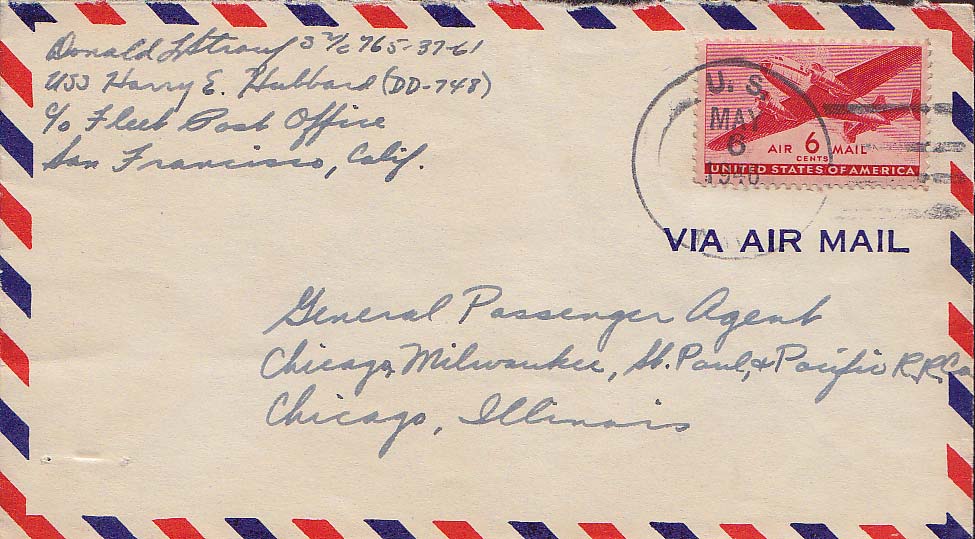 Donald L Strauf S 2/c 765-37-61
USS Harry E. Hubbard (DD-748)
c/o Fleet Post Office
San Francisco, Calif.
U. S.
MAY
6
1946
AIR 6 MAIL
CENTS
UNITED STATES OF AMERICA
VIA AIR MAIL
General Passenger Agent
Chicago, Milwaukee, St. Paul, & Pacific R.R. Co
Chicago, Illinois